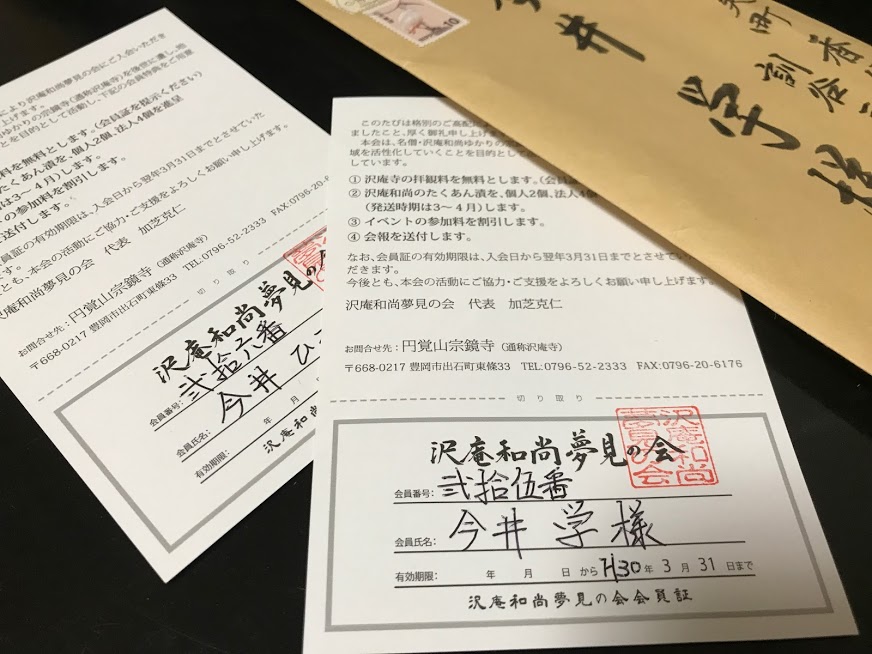 により沢庵和尚夢見の会にご入会いただき
上げます。
ゆかりの宗鏡寺(通称沢庵寺)を後世に遺し、地
ことを目的として活動し、下記の会員特典をご用意
料を無料とします。(会員証を提示ください)
たくあん漬を、個人2個、法人4個を進呈
は3~4月)します。
の参加料を割引します。
送付します。
会員証の有効期限は、入会日から翌年3月31日までとさせていた
ます。
とも、本会の活動にご協力・ご支援をよろしくお願い申し上げます。
沢庵和尚夢見の会 代表 加芝克仁
お問合せ先:円覚山宗鏡寺(通称沢庵寺)
〒668-0217 豊岡市出石町東條33 TEL:0796-52-2333 FAX:0796-20-6
切り取り
沢庵和尚夢見の
会員番号: 弐拾六番
会員氏名: 今井 ひ
有効期限: 年 月
沢庵和尚
このたびは格別のご高配に
ましたこと、厚く御礼申し上げ
本会は、名僧・沢庵和尚ゆかりの
域を活性化していくことを目的として
しています。
① 沢庵寺の拝観料を無料とします。(会員証
② 沢庵和尚のたくあん漬を、個人2個、法人4個
(発送時期は3~4月)します。
③ イベントの参加料を割引します。
④ 会報を送付します。
なお、会員証の有効期限は、入会日から翌年3月31日までとさせてい
だきます。
今後とも、本会の活動にご協力・ご支援をよろしくお願い申し上げます
沢庵和尚夢見の会 代表 加芝克仁
お問合せ先:円覚山宗鏡寺(通称沢庵寺)
〒668-0217 豊岡市出石町東條33 TEL:0796-52-2333 FAX:0796-20-6176
切り取り
沢庵和尚夢見の会
沢庵和尚
夢見の会
会員番号: 弐拾伍番
会員氏名: 今井 学様
有効期限: 年 月 日から H30年 3月 31日まで
沢庵和尚夢見の会会員証
10
井 学 様